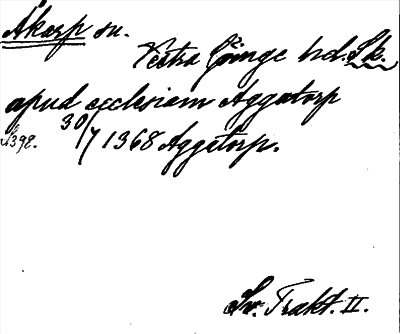 Åkarp sn.
Vestra Göinge hd. Sk.
apud ecclesiam Aggatorp
30/7 1368 Aggatorp.
S. 398.
Sv. Trakt. II.